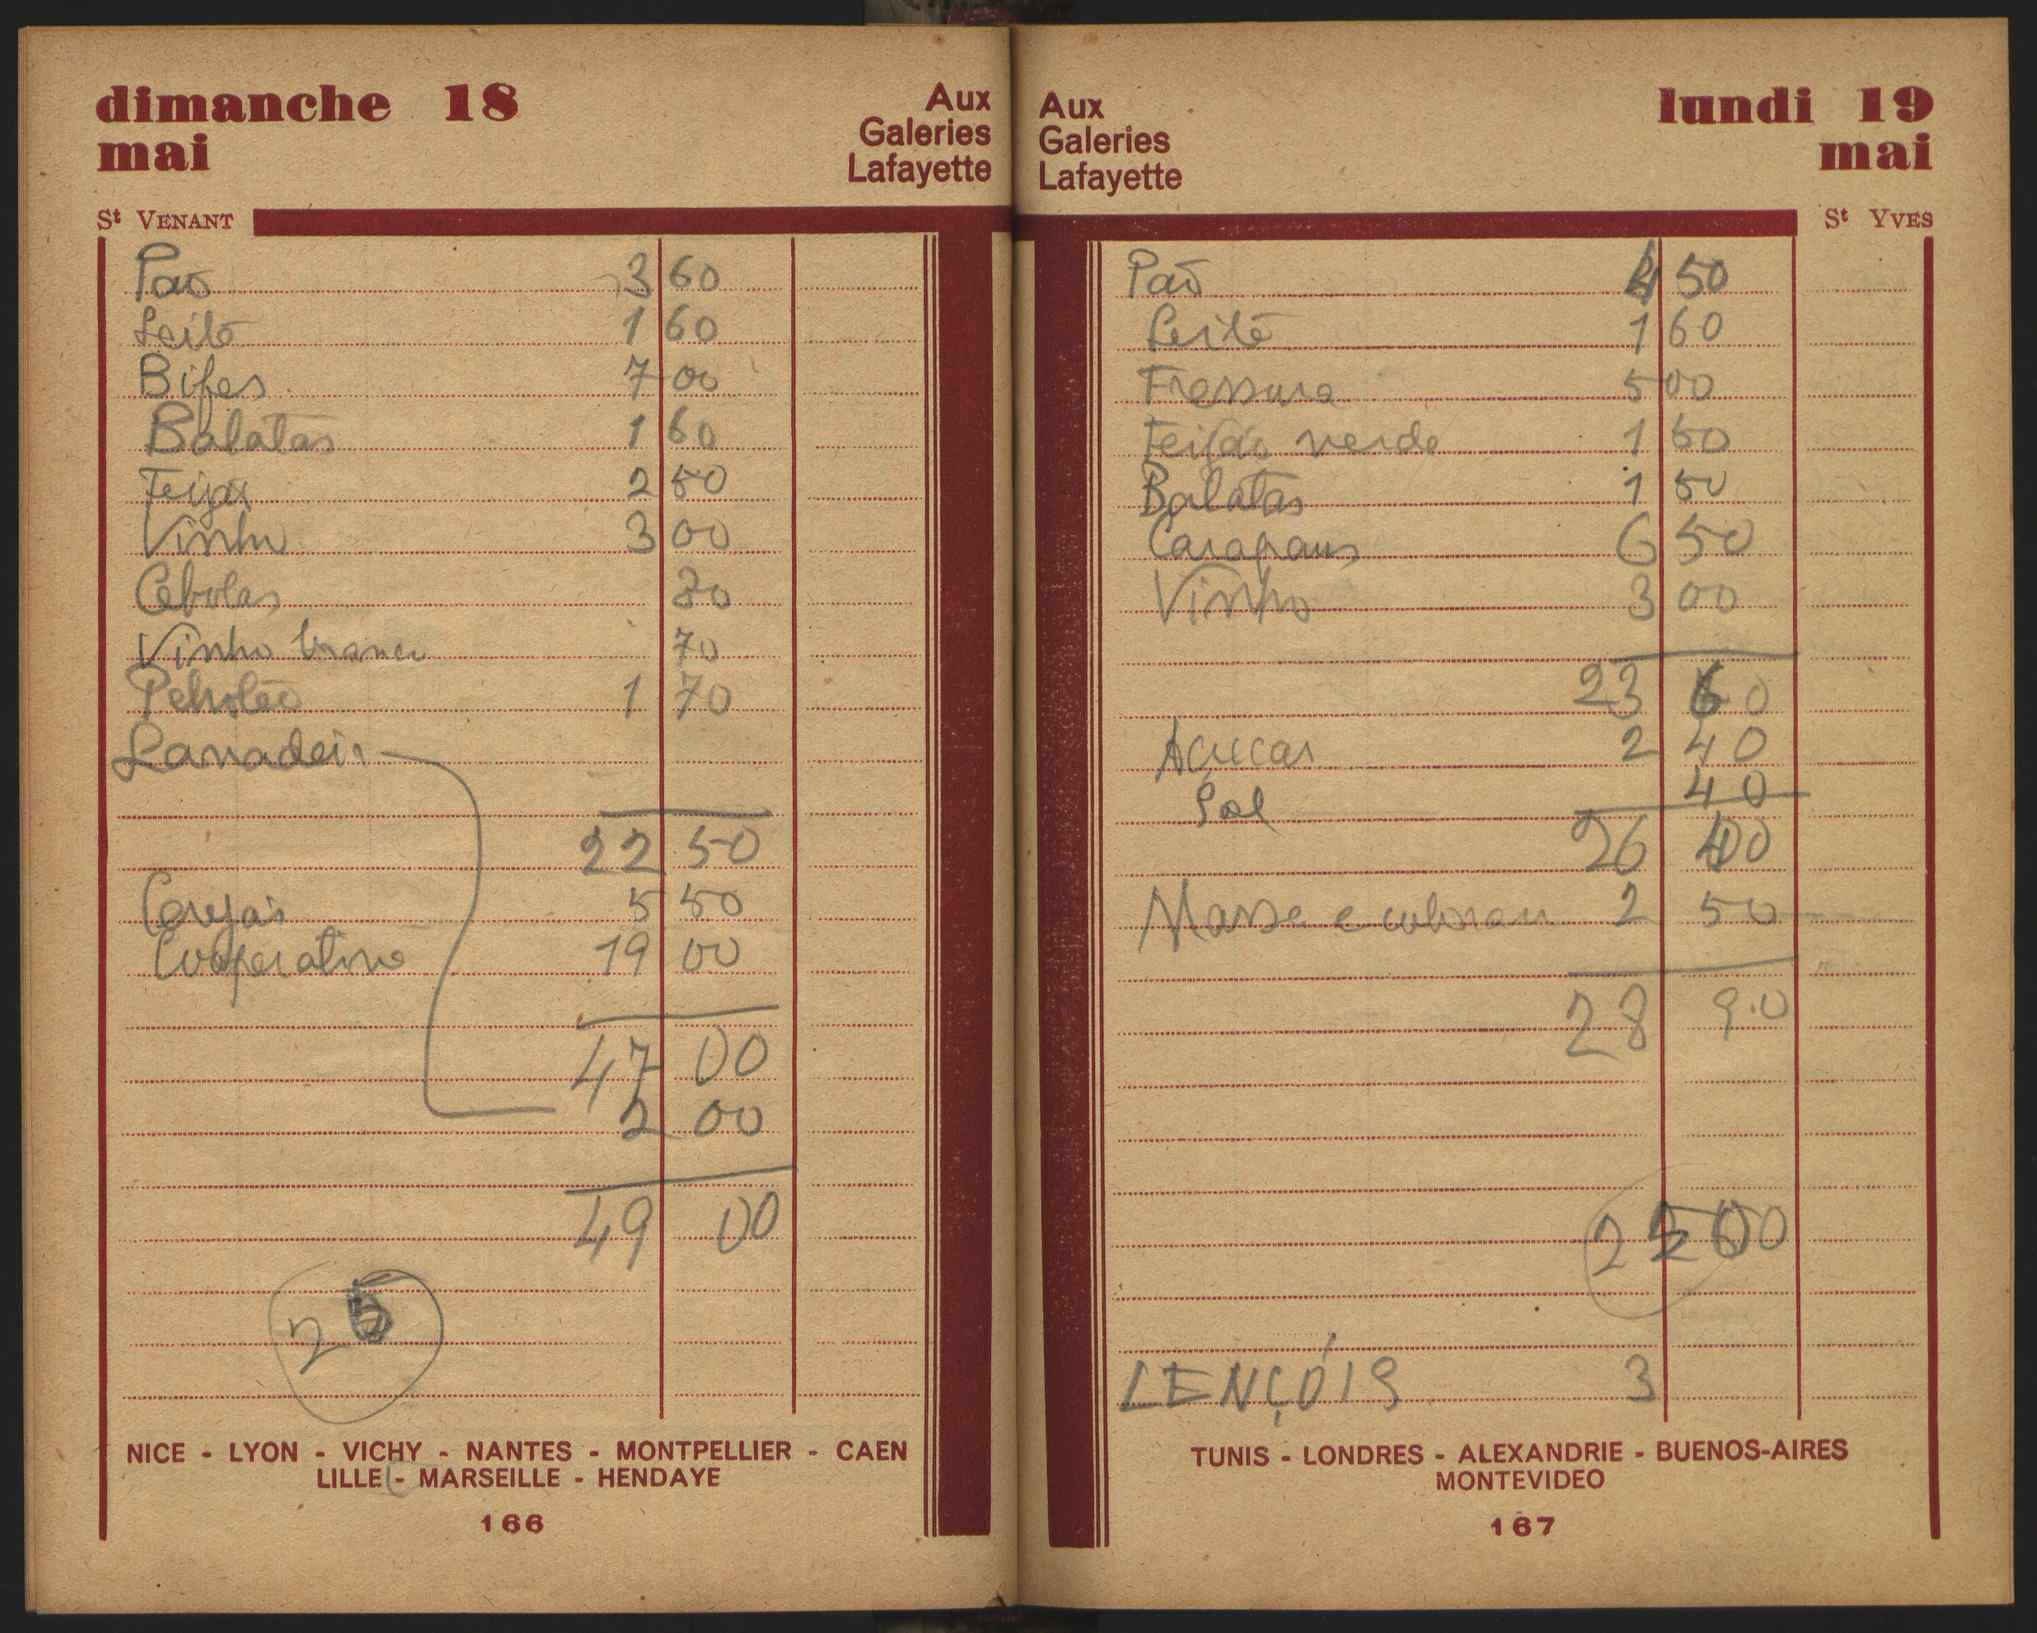 dimanche 18
mai
Aux
Galeries
Lafayette
St VENANT
Pão 3 60
Leite 1 60
Bifes 7 00
Batatas 1 60
Feijão 2 50
Vinho 3 00
Cebolas 80
Vinho branco 70
Petroleo 1 70
Lavadeira
22 50
Cerejas 5 50
Cooperativa 19 00
47 00
2 00
49 00
25
NICE - LYON - VICHY - NANTES - MONTPELLIER - CAEN
LILLE - MARSEILLE - HENDAYE
166
Aux
Galeries
Lafayette
lundi 19
mai
St YVES
Pão 4 50
Leite 1 60
Fressura 5 00
Feijão verde 1 50
Batatas 1 50
Carapaus 6 50
Vinho 3 00
23 60
Açucar 2 40
Sal 40
26 40
Massa e 2 50
28 90
25 00
LENÇÓIS 3
TUNIS - LONDRES - ALEXANDRIE - BUENOS-AIRES
MONTEVIDEO
167